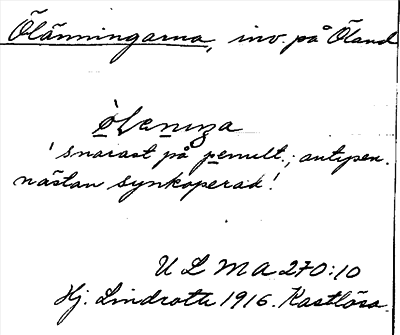 Ölänningarna, inv. på Öland
òleniŋa
' snarast på penult.; antipen.
nästan synkoperad!
ULMA 270:10
Hj. Lindroth 1916. Kastlösa.